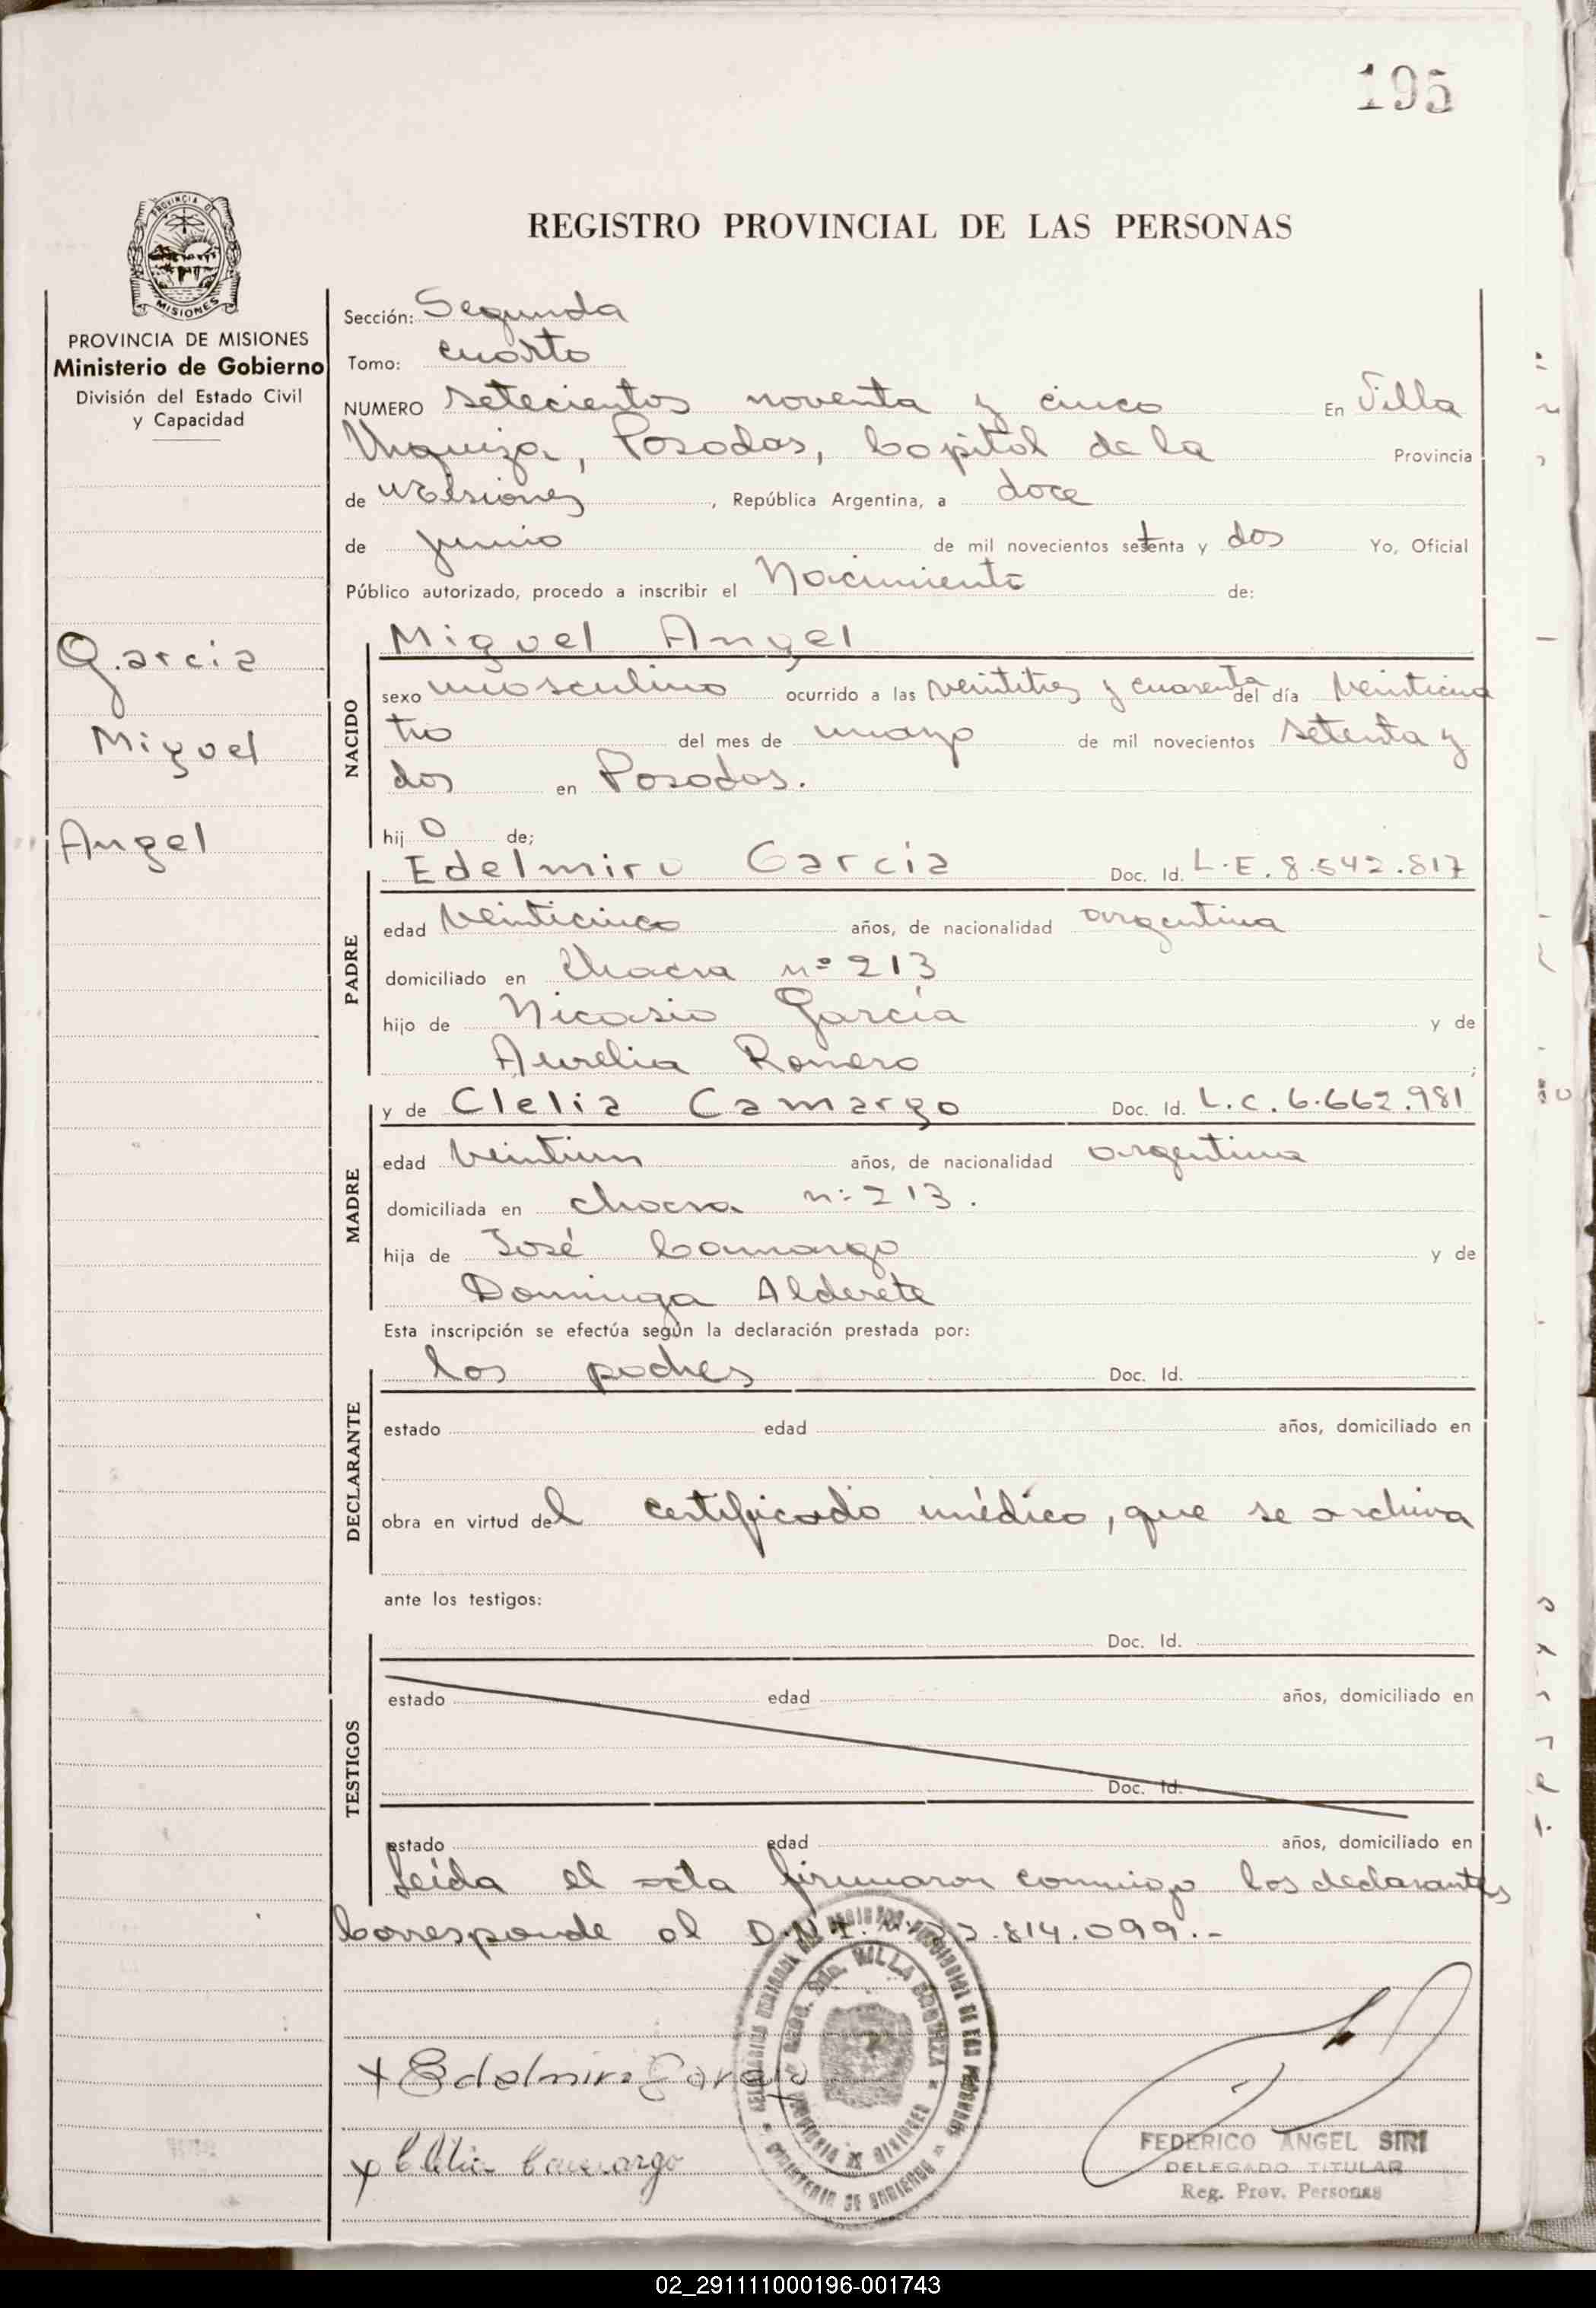 195
PROVINCIA DE
MISIONES
REGISTRO PROVINCIAL DE LAS PERSONAS
PROVINCIA DE MISIONES
Ministerio de Gobierno
División del Estado Civil
y Capacidad
Garcia
Miguel
Angel
Sección: Segunda
Tomo: cuarto
NUMERO setecientos noventa y cinco En Villa
Urquiza, Posadas, Capital de la Provincia
de Misiones, República Argentina, a doce
de junio de mil novecientos setenta y dos Yo, Oficial
Público autorizado, procedo a inscribir el Nacimiento de:
NACIDO
Miguel Angel
sexo masculino ocurrido a las veintitres y cuarenta del día veinticua
tro del mes de mayo de mil novecientos setenta y
dos en Posadas.
hijo de;
PADRE
Edelmiro García Doc. Id. L.E. 8.542.817
edad veinticinco años, de nacionalidad argentina
domiciliado en Chacra nº 213
hijo de Nicasio García y de
Aurelia Romero ;
MADRE
y de Clelia Camargo Doc. Id. L.C. 6.662.981
edad veintiun años, de nacionalidad argentina
domiciliada en chacra nº 213.
hija de José Camargo y de
Dominga Alderete
Esta inscripción se efectúa según la declaración prestada por:
DECLARANTE
los padres Doc. Id.
estado edad años, domiciliado en
obra en virtud del certificado médico, que se archiva
ante los testigos:
TESTIGOS
Doc. Id.
estado edad años, domiciliado en
Doc. Id.
estado edad años, domiciliado en
Leída el acta firmaron conmigo los declarantes
Corresponde al D.N.I. .814.099.-
x Edelmiro Garcia
x Clelia Camargo
FEDERICO ANGEL SIRI
DELEGADO TITULAR
Reg. Prov. Personas
02_291111000196-001743